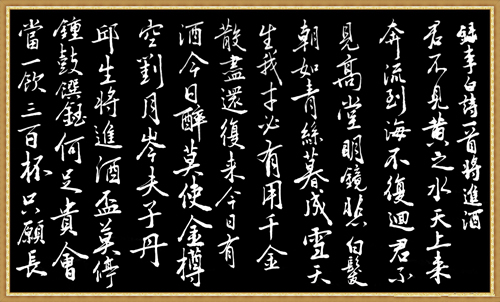 錄李白詩一首將進酒
君不見黃之水天上来
奔流到海不復迴君不
見高堂明鏡悲白髮
朝如青絲暮成雪天
生我才必有用千金
散盡還復来今日有
酒今日醉莫使金樽
空對月岑夫子丹
邱生將進酒盃莫停
鍾鼓饌鈺何足貴會
當一飲三百杯只願長